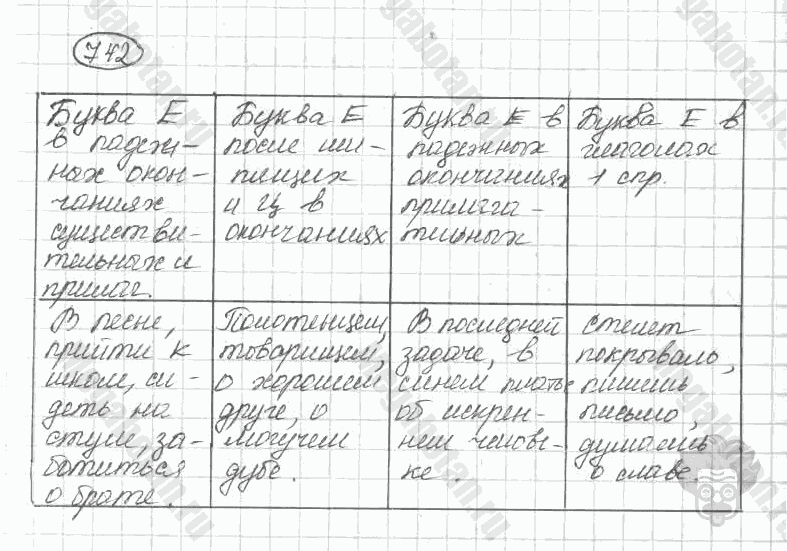 742
Буква Е
в падеж-
ных окон-
чаниях
существи-
тельных и
прилаг.
Буква Е
после ши-
пящих
и Ц в
окончаниях
Буква Е в
падежных
окончаниях
прилага-
тельных
Буква Е в
глаголах
1 спр.
В песне,
прийти к
школе, си-
деть на
стуле, за-
ботиться
о брате.
Полотенцем,
товарищем,
о хорошем
друге, о
могучем
дубе.
В последней
задаче, в
синем платье
об искрен-
нем челове-
ке.
стелет
покрывало,
пишешь
письмо,
думаешь
о славе.
gabotan.ru
gabotan.ru
gabotan.ru
gabotan.ru